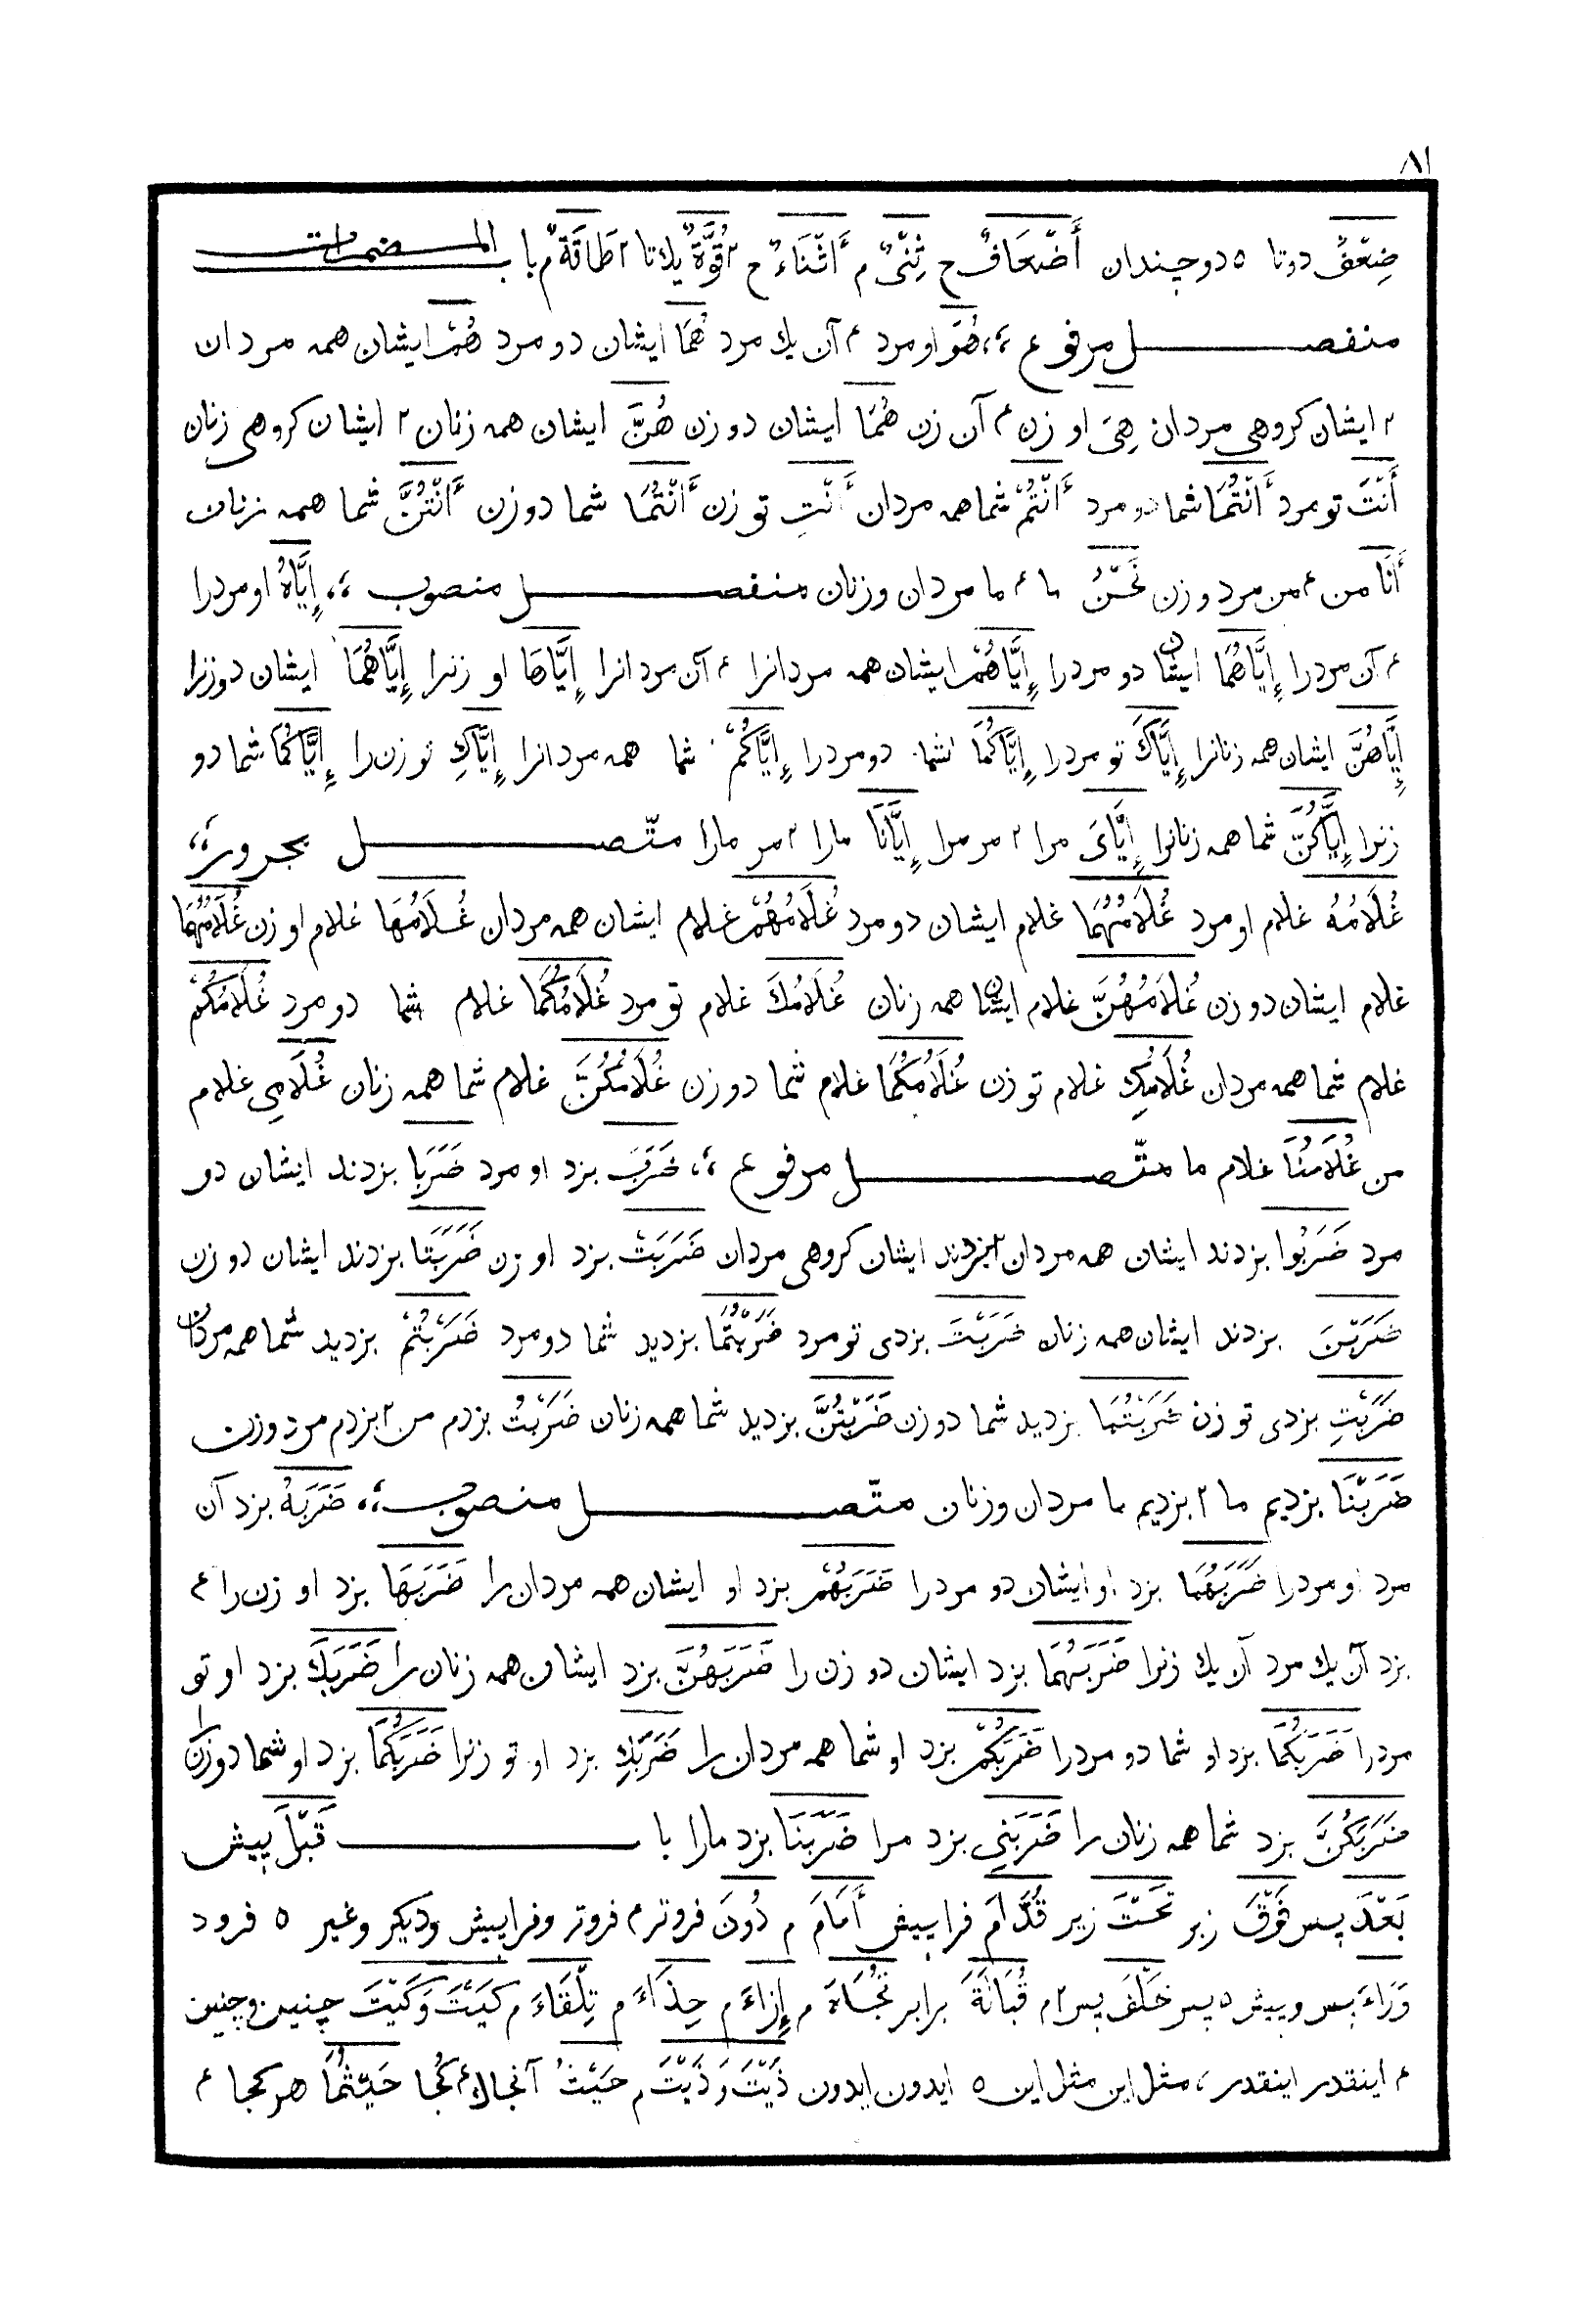 ٨١
ضِعْفٌ دوتا ٥ دوچندان أَضْعَافٌ ح ثِنْیٌ م أَثْنَاءٌ ح ٢ قُوَّةٌ یك تا ٢ طَاقَةٌ م باب المضمرات
منفصل مرفوع ،، هُوَ او مرد ۴ آن یك مرد هُمَا ایشان دو مرد هُمْ ایشان همه مردان
٢ ایشان کروهی مردان هِیَ او زن ۴ آن زن هُمَا ایشان دو زن هُنَّ ایشان همه زنان ٢ ایشان کروهی زنان
أَنْتَ تو مرد أَنْتُمَا شما دو مرد أَنْتُمْ شما همه مردان أَنْتِ تو زن أَنْتُمَا شما دو زن أَنْتُنَّ شما همه زنان
أَنَا من ۴ من مرد و زن نَحْنُ ما ۴ ما مردان و زنان منفصل منصوب ،، إِیَّاهُ او مردرا
۴ آن مردرا إِیَّاهُمَا ایشان دو مردرا إِیَّاهُمْ ایشان همه مردانرا ۴ آن مردانرا إِیَّاهَا او زنرا إِیَّاهُمَا ایشان دو زنرا
إِیَّاهُنَّ ایشان همه زنانرا إِیَّاكَ تو مردرا إِیَّاكُمَا شما دو مردرا إِیَّاكُمْ شما همه مردانرا إِیَّاكِ تو زن را إِیَّاكُمَا شما دو
زنرا إِیَّاكُنَّ شما همه زنانرا إِیَّایَ مرا ٢ مر مرا إِیَّانَا مارا ٢ مر مارا متّصل مجرور ،،
غُلَامُهُ غلام او مرد غُلَامُهُمَا غلام ایشان دو مرد غُلَامُهُمْ غلام ایشان همه مردان غُلَامُهَا غلام او زن غُلَامُهُمَا
غلام ایشان دو زن غُلَامُهُنَّ غلام ایشان همه زنان غُلَامُكَ غلام تو مرد غُلَامُكُمَا غلام شما دو مرد غُلَامُكُمْ
غلام شما همه مردان غُلَامُكِ غلام تو زن غُلَامُكُمَا غلام شما دو زن غُلَامُكُنَّ غلام شما همه زنان غُلَامِی غلام
من غُلَامُنَا غلام ما متّصل مرفوع ،، ضَرَبَ بزد او مرد ضَرَبَا بزدند ایشان دو
مرد ضَرَبُوا بزدند ایشان همه مردان ٢ بزدند ایشان کروهی مردان ضَرَبَتْ بزد او زن ضَرَبَتَا بزدند ایشان دو زن
ضَرَبْنَ بزدند ایشان همه زنان ضَرَبْتَ بزدی تو مرد ضَرَبْتُمَا بزدید شما دو مرد ضَرَبْتُمْ بزدید شما همه مردان
ضَرَبْتِ بزدی تو زن ضَرَبْتُمَا بزدید شما دو زن ضَرَبْتُنَّ بزدید شما همه زنان ضَرَبْتُ بزدم من ٢ بزدم مرد و زن
ضَرَبْنَا بزدیم ما ٢ بزدیم ما مردان و زنان متّصل منصوب ،، ضَرَبَهُ بزد آن
مرد او مردرا ضَرَبَهُمَا بزد او ایشان دو مردرا ضَرَبَهُمْ بزد او ایشان همه مردان را ضَرَبَهَا بزد او زن را ۴
بزد آن یك مرد آن یك زنرا ضَرَبَهُمَا بزد ایشان دو زن را ضَرَبَهُنَّ بزد ایشان همه زنان را ضَرَبَكَ بزد او تو
مردرا ضَرَبَكُمَا بزد او شما دو مردرا ضَرَبَكُمْ بزد او شما همه مردان را ضَرَبَكِ بزد او تو زنرا ضَرَبَكُمَا بزد او شما دو زن را
ضَرَبَكُنَّ بزد شما همه زنان را ضَرَبَنِی بزد مرا ضَرَبَنَا بزد مارا باب قَبْلَ پیش
بَعْدَ پس فَوْقَ زبر تَحْتَ زیر قُدَّامَ فراپیش أَمَامَ م دُونَ فروتر م فروتر وفراپیش ودیکر وغیر ٥ فرود
وَرَاءَ پس وپیش ٥ پس خَلْفَ پس ٢ م قُبَالَةَ برابر تُجَاهَ م إِزَاءَ م حِذَاءَ م تِلْقَاءَ م كَیْتَ وَكَیْتَ چنین وچنین
۴ اینقدر اینقدر ، مثل این مثل این ٥ ایدون ایدون ذَیْتَ وَذَیْتَ م حَیْثُ آنجاك ۴ کجا حَیْثُمَا هر کجا ۴